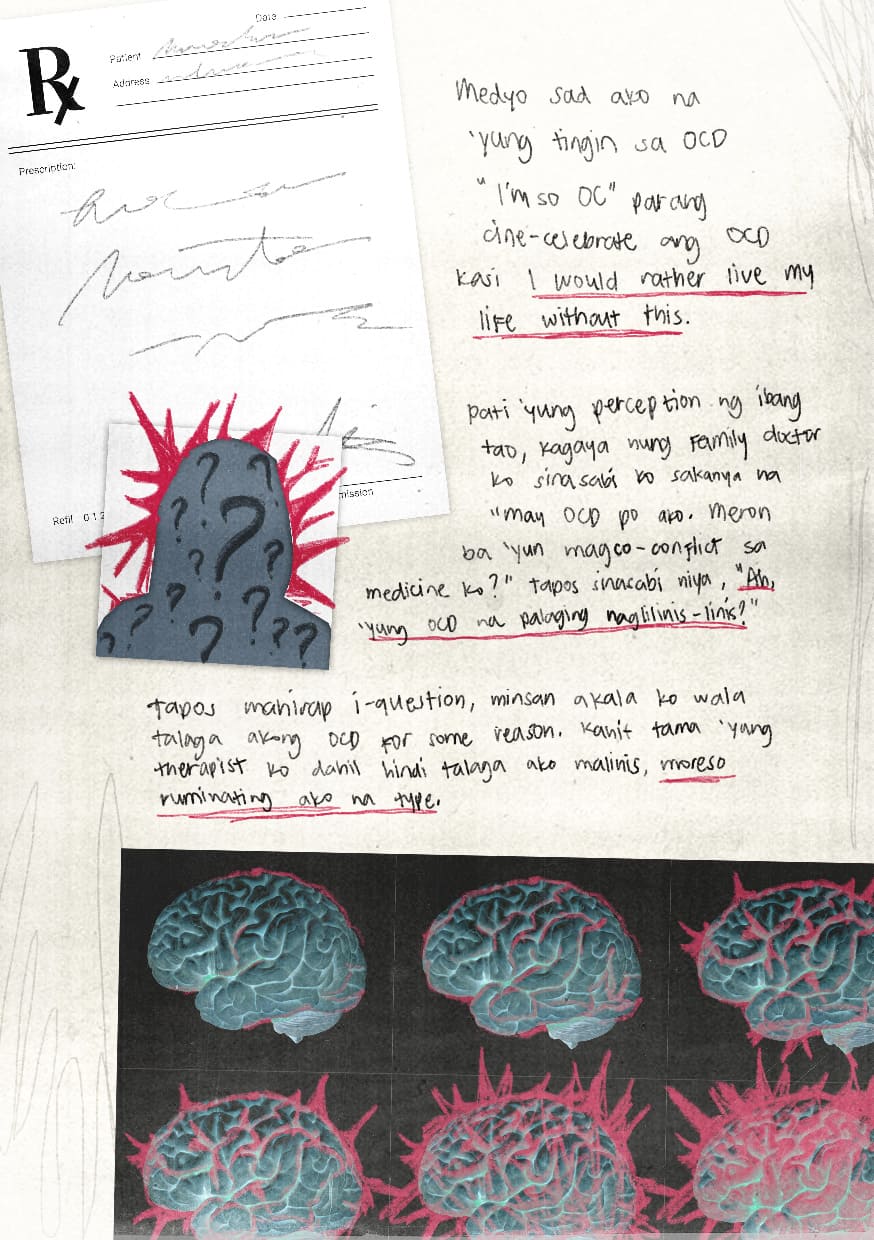 Date:
Patient
Rx
Address
Prescription:
Refill 0 1 2
mission
Medyo sad ako na
'yung tingin sa OCD
"I'm so OC" parang
cine-celebrate ang OCD
kasi I would rather live my
life without this.
pati 'yung perception ng ibang
tao, kagaya nung Family doctor
ko sinasabi ko sakanya na
"may OCD po ako. Meron
ba 'yun magco-conflict sa
medicine ko?" tapos sinasabi niya, "Ah,
'yung OCD na palaging naglilinis-linis?"
Tapos mahirap i-question, minsan akala ko wala
talaga akong OCD for some reason. Kahit tama 'yang
therapist ko dahil hindi talaga ako malinis, moreso
ruminating ako na type.